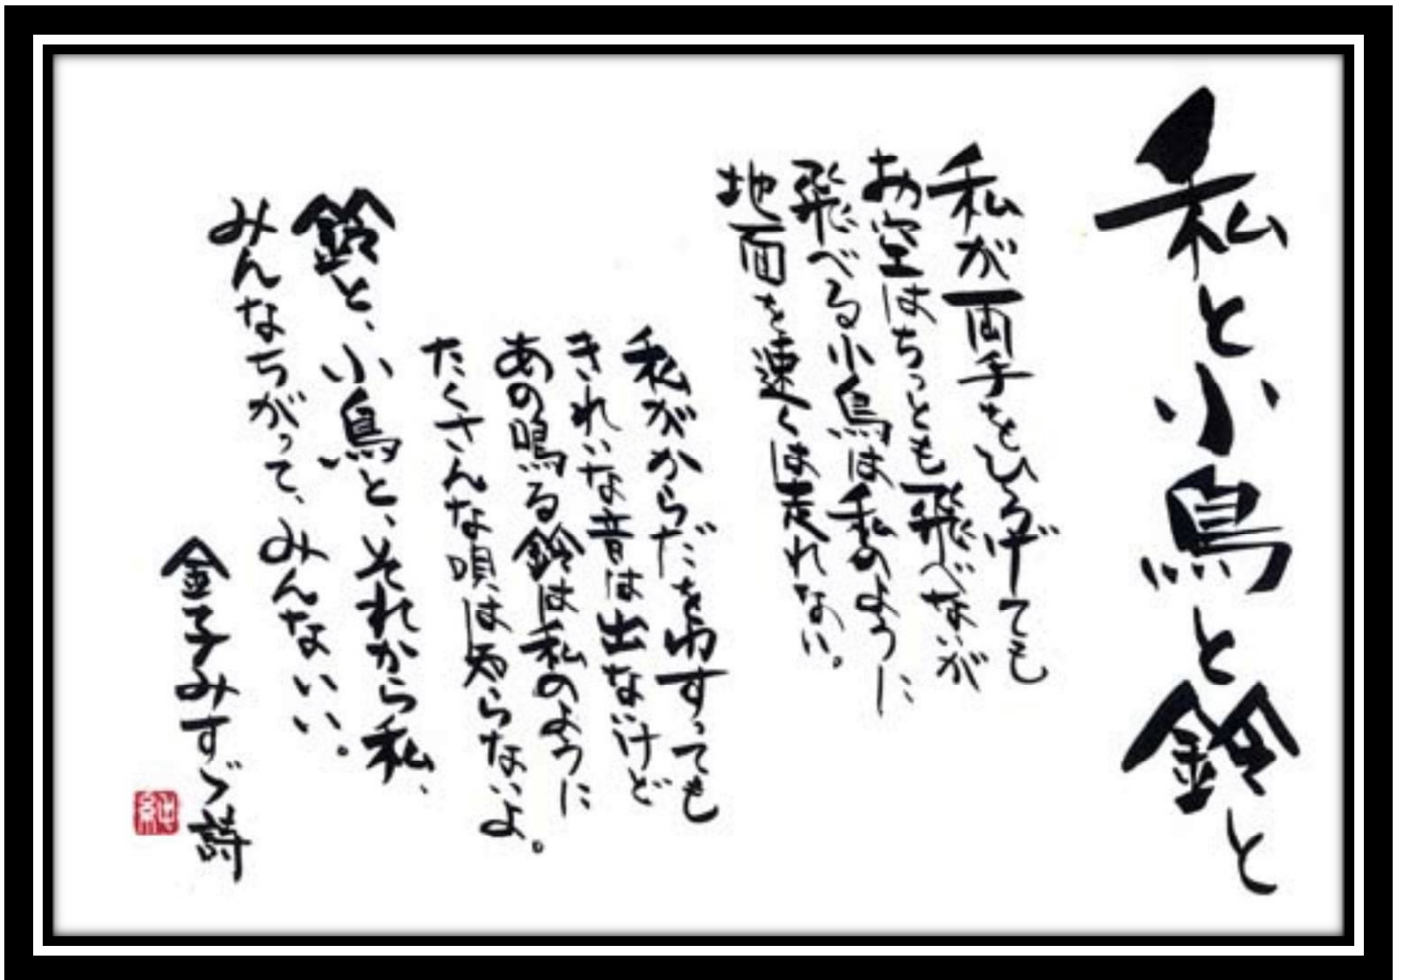 私と小鳥と鈴と
私が両手をひろげても
お空はちっとも飛べないが
飛べる小鳥は私のように
地面を速くは走れない。
私がからだをゆすっても
きれいな音は出ないけど
あの鳴る鈴は私のように
たくさんな唄は知らないよ。
鈴と、小鳥と、それから私、
みんなちがって、みんないい。
金子みすゞ詩